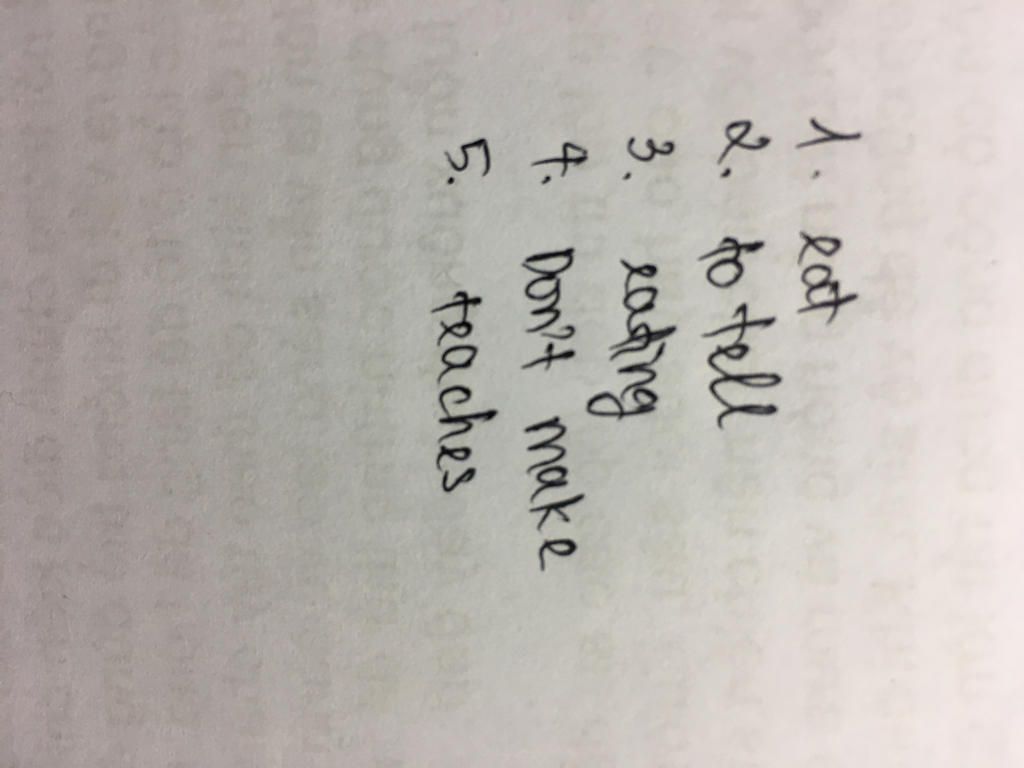 1. eat
2. to tell
3. eating
4. Don't make
5. teaches